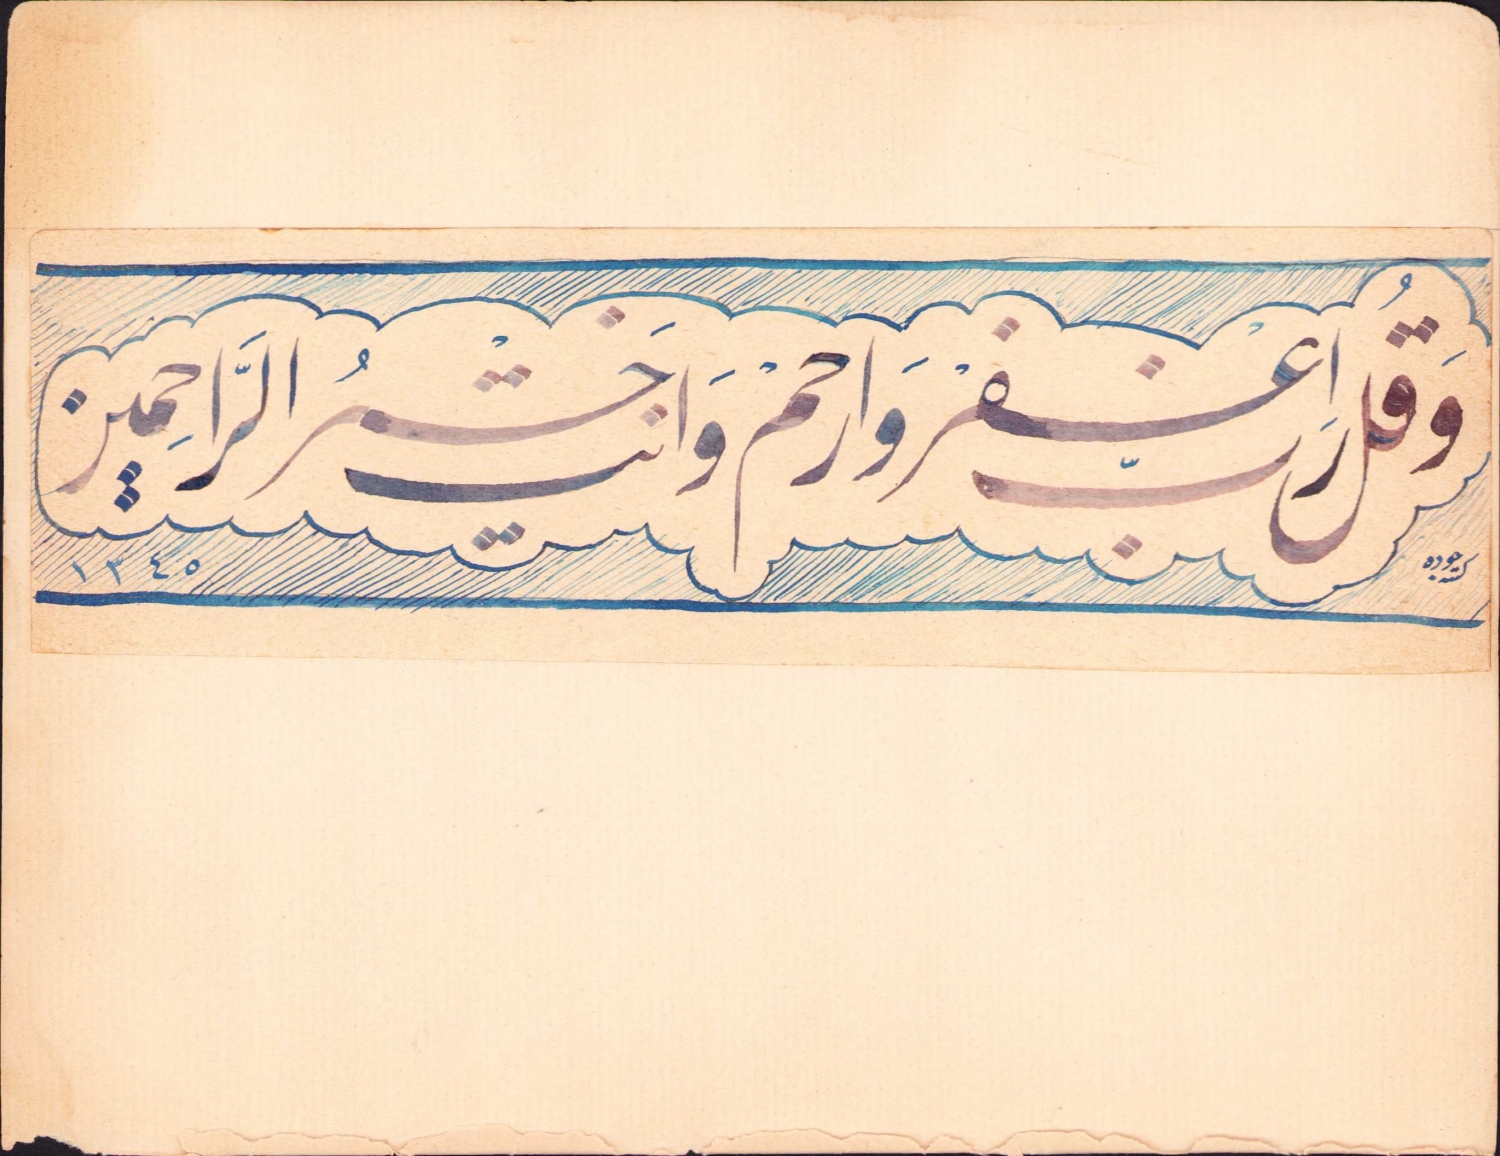 وَقُل رَبِّ اغْفِرْ وَارْحَمْ وَانت خَيْرُ الرَّاحِمِين
كتبه جوده
١٣٤٥